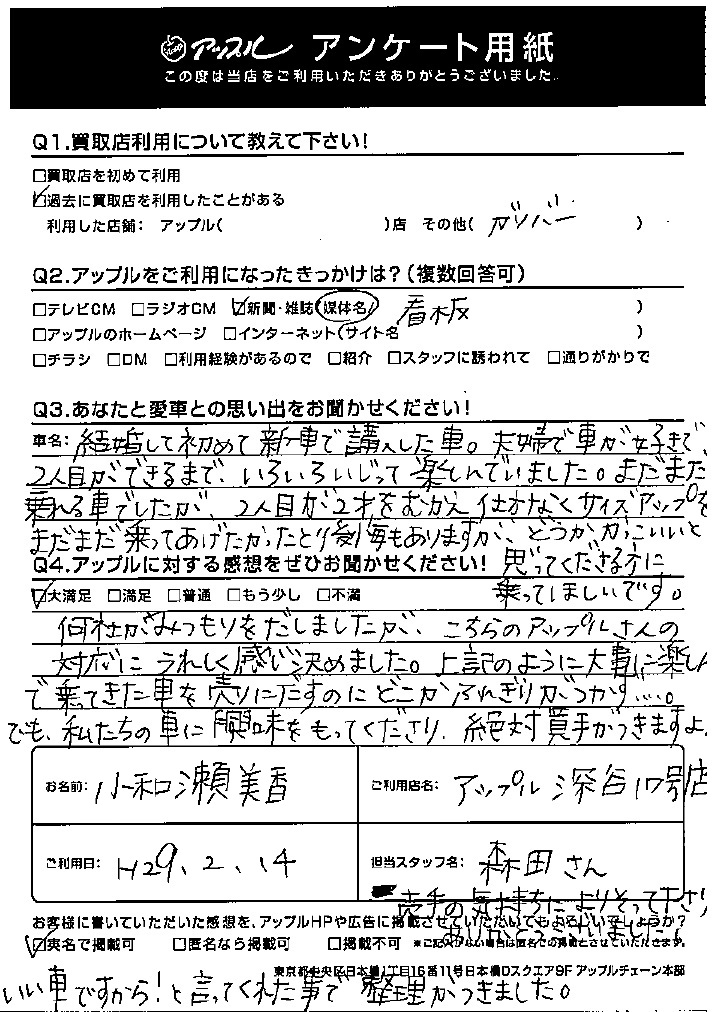 アップル アンケート用紙
この度は当店をご利用いただきありがとうございました。
Q1.買取店利用について教えて下さい!
□買取店を初めて利用
☑過去に買取店を利用したことがある
利用した店舗: アップル( )店 その他( ガリバー )
Q2.アップルをご利用になったきっかけは?(複数回答可)
□テレビCM □ラジオCM ☑新聞・雑誌(媒体名 看板 )
□アップルのホームページ □インターネット(サイト名 )
□チラシ □DM □利用経験があるので □紹介 □スタッフに誘われて □通りがかりで
Q3.あなたと愛車との思い出をお聞かせください!
車名: 結婚して初めて新車で購入した車。夫婦で車が好きで、
2人目ができるまで、いろいろいじって楽しんでいました。まだまだ
乗れる車でしたが、2人目が2才をむかえ仕方なくサイズアップを
まだまだ乗ってあげたかったとり後悔もありますが、どうかかっこいいと
思ってくださる方に
乗ってほしいです。
Q4.アップルに対する感想をぜひお聞かせください!
☑大満足 □満足 □普通 □もう少し □不満
何社かみつもりをだしましたが、こちらのアップルさんの
対応にうれしく感い決めました。上記のように大事に楽しん
で乗ってきた車を売りにだすのにどこかふんぎりがつかず....。
でも、私たちの車に興味をもってくださり、絶対買手がつきますよ、
お名前: 小和瀬美香
ご利用店名: アップル深谷17号店
ご利用日: H29.2.14
担当スタッフ名: 森田さん
売手の気持ちによりそって下さり
ありがとうございました!
お客様に書いていただいた感想を、アップルHPや広告に掲載させていただいてもよろしいでしょうか?
☑実名で掲載可 □匿名なら掲載可 □掲載不可 ※ご記入がない場合は匿名での掲載とさせていただきます。
東京都中央区日本橋1丁目16番11号日本橋Dスクエア9F アップルチェーン本部
いい車ですから!と言ってくれた事で整理がつきました。